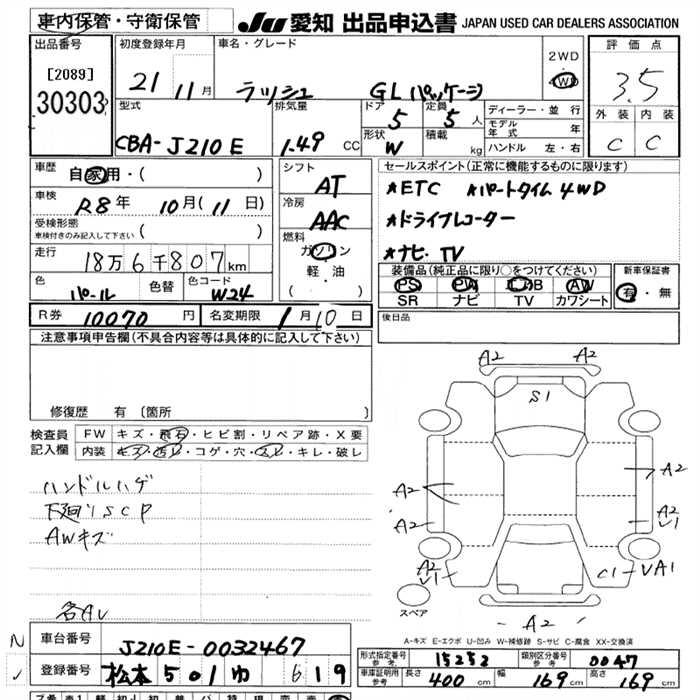 車内保管・守衛保管
JU 愛知 出品申込書 JAPAN USED CAR DEALERS ASSOCIATION
出品番号
[2089]
30303
初度登録年月
21 11月
車名・グレード
ラッシュ GLパッケージ
2WD
4WD
評価点
3.5
外装 内装
C C
型式
CBA-J210E
排気量
1.49 CC
ドア
5
定員
5人
形状
W
積載
kg
ディーラー・並行
モデル年式 年
ハンドル 左・右
車歴
自家用・( )
車検
R8年 10月(11日)
受検形態
車検付きのみ記入して下さい ( )
走行
18万6千807km
色
パール
色替
色コード
W24
シフト
AT
冷房
AAC
燃料
ガソリン
軽・油
( )
セールスポイント(正常に機能するものに限ります)
★ETC ★パートタイム4WD
★ドライブレコーダー
★ナビ・TV
装備品(純正品に限り○をつけてください)
PS PW AW
SR ナビ TV カワシート
新車保証書
有・無
R券 10070円
名変期限 1月10日
後日品
注意事項申告欄(不具合内容等は具体的に記入して下さい)
修復歴 有 〔箇所 〕
検査員記入欄
FW キズ・飛石・ヒビ割・リペア跡・X要
内装 キズ・汚レ・コゲ・穴・スレ・キレ・破レ
ハンドルハゲ
下廻りSCP
AWキズ
各AU
A2 A2
S1
A2
A2
A2
A2
U1
A2
U1
C1 UA1
A2
スペア
A-キズ E-エクボ U-凹み W-補修跡 S-サビ C-腐食 XX-交換済
車台番号
J210E-0032467
登録番号
松本 501 ゆ 619
形式指定番号 参考 15252
類別区分番号 参考 0047
車庫証明用 参考 長さ 400cm 幅 169cm 高さ 169cm